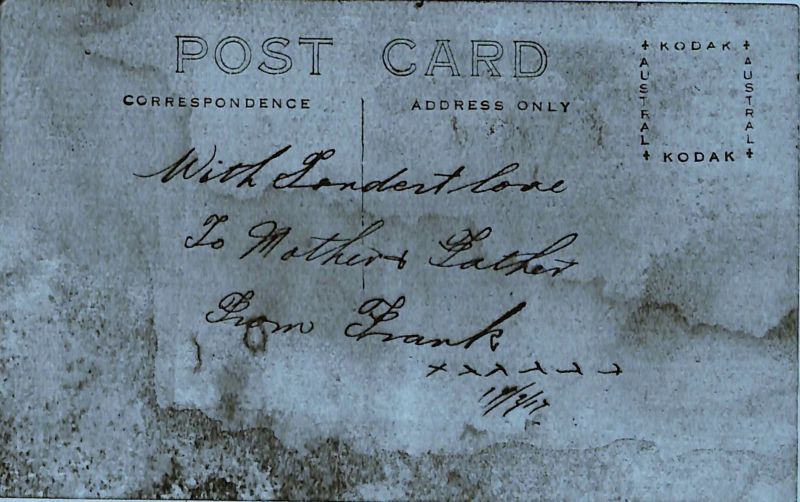 POST CARD
CORRESPONDENCE
ADDRESS ONLY
KODAK
AUSTRAL
AUSTRAL
KODAK
With Fondest love
To Mother & Father
From Frank
xxxxxx